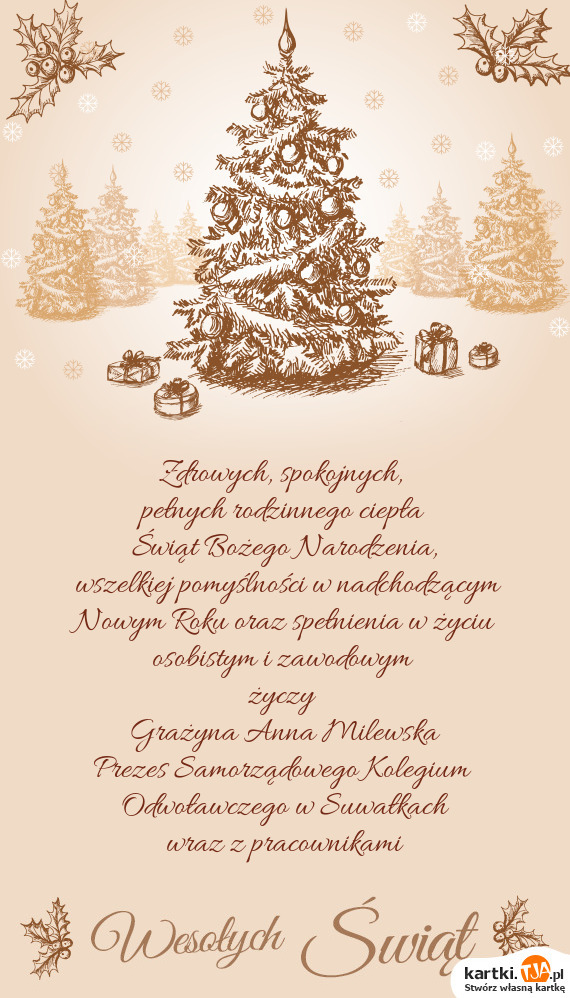 Zdrowych, spokojnych,
pełnych rodzinnego ciepła
Świąt Bożego Narodzenia,
wszelkiej pomyślności w nadchodzącym
Nowym Roku oraz spełnienia w życiu
osobistym i zawodowym
życzy
Grażyna Anna Milewska
Prezes Samorządowego Kolegium
Odwoławczego w Suwałkach
wraz z pracownikami
Wesołych Świąt
kartki.TJA.pl
Stwórz własną kartkę